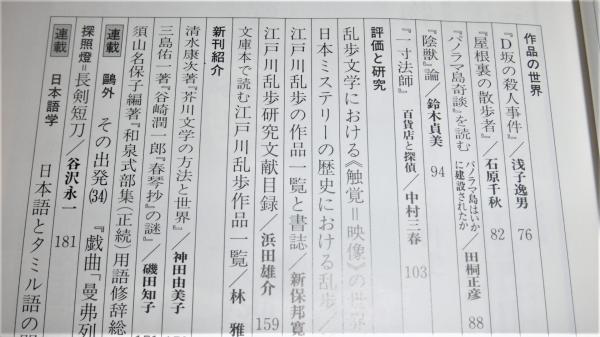 作品の世界
『D坂の殺人事件』/浅子逸男 76
『屋根裏の散歩者』/石原千秋 82
『パノラマ島奇談』を読む パノラマ島はいかに建設されたか/田桐正彦 88
『陰獣』論/鈴木貞美 94
『一寸法師』 百貨店と探偵/中村三春 103
評価と研究
乱歩文学における《触覚=映像》の世界
日本ミステリーの歴史における乱歩/
江戸川乱歩の作品一覧と書誌/新保邦寛
江戸川乱歩研究文献目録/浜田雄介 159
文庫本で読む江戸川乱歩作品一覧/林 雅
新刊紹介
清水康次著『芥川文学の方法と世界』/神田由美子
三島佑一著『谷崎潤一郎『春琴抄』の謎』/磯田知子
須山名保子編著『和泉式部集(正続)用語修辞総
連載 鷗外 その出発(34) 『戯曲「曼弗列
探照燈=長剣短刀/谷沢永一 181
連載 日本語学 日本語とタミル語の